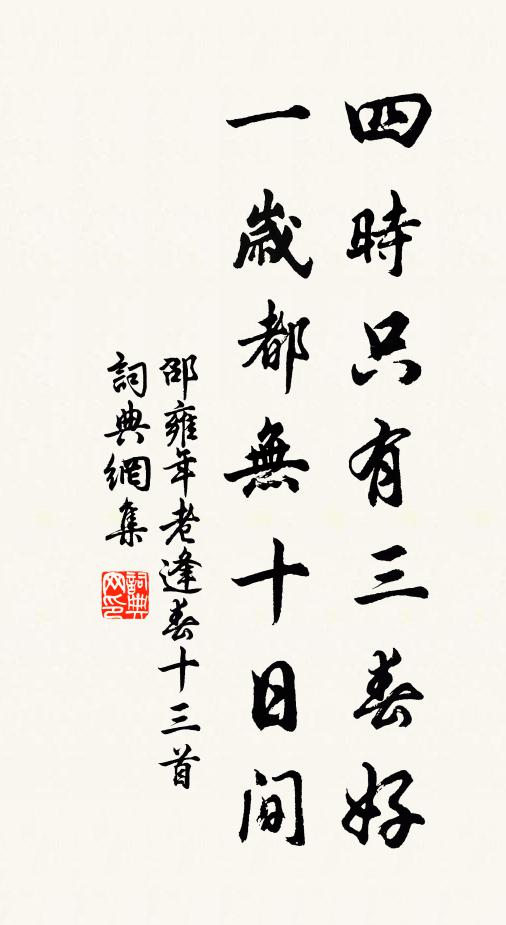 四時只有三春好
一歲都無十日间
邵雍年老逢春十三首
詞典網集
詞典网印